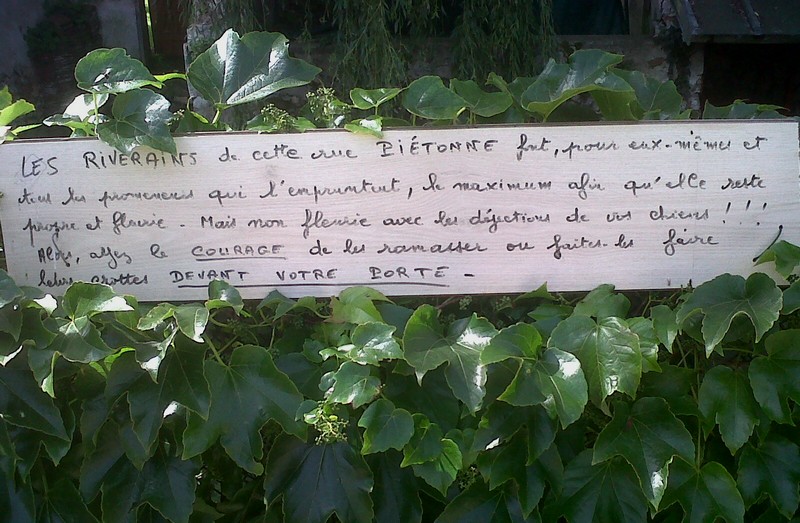 LES RIVERAINS de cette rue PIÉTONNE font, pour eux-mêmes et
tous les promeneurs qui l'empruntent, le maximum afin qu'elle reste
propre et fleurie - Mais non fleurie avec les déjections de vos chiens !!!
Alors, ayez le COURAGE de les ramasser ou faites-les faire
leurs crottes DEVANT VOTRE PORTE -